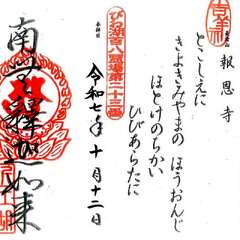 報恩寺
とこしえに
きよきみやまの ほうおんじ
ほとけのちかい
ひびあらたに
びわ湖百八霊場第二十三番
奉拝
令和七年 十月十二日
南無釋迦如来